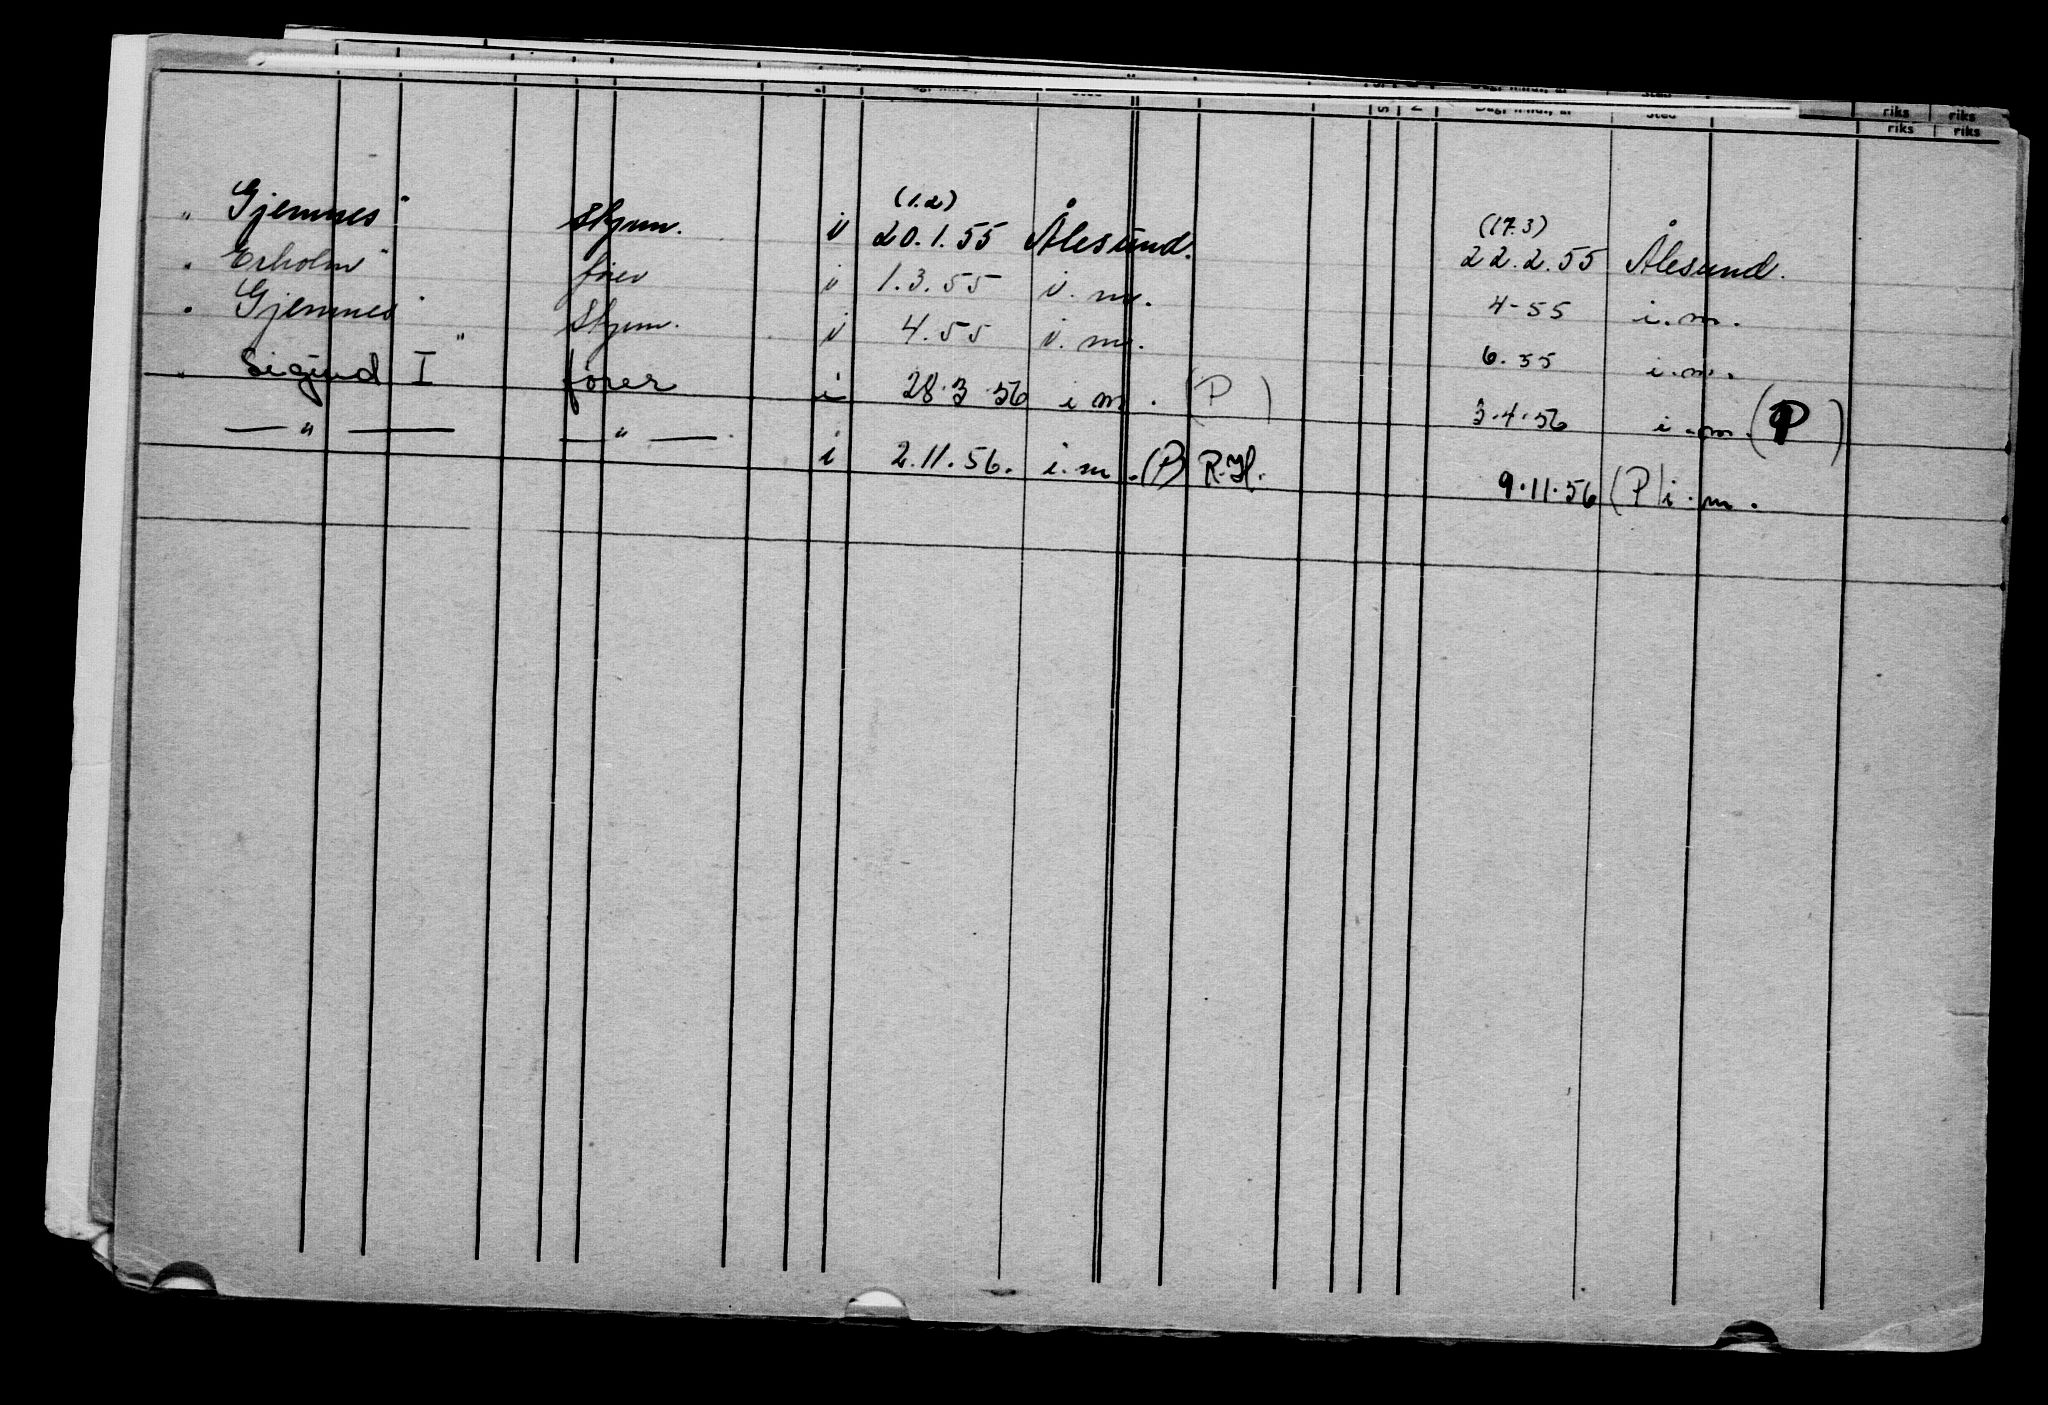 riks riks
riks riks
(1.2) (17.3)
" Gjemnes" Skjem. i 20.1.55 Ålesund. 22.2.55 Ålesund.
" Erholm" fører i 1.3.55 i.m. 4-55 i.m.
" Gjemnes" Skjem. i 4.55 i.m. 6.55 i.m.
" Sigurd I" fører i 28.3.56 i m. (P) 3.4.56 i.m. (P)
— " — — " — i 2.11.56. i.m.(P) R.H. 9.11.56 (P) i.m.